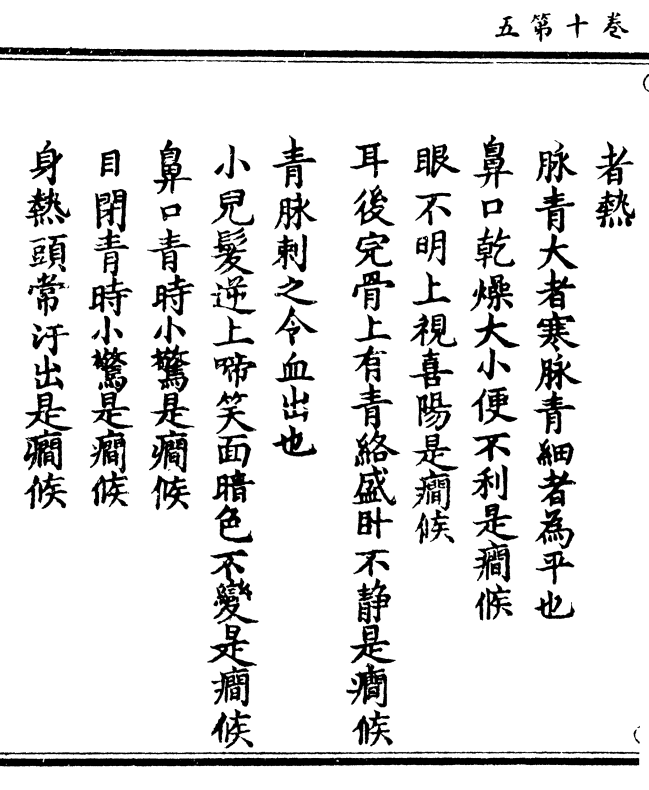 卷十第五
者熱
脉青大者寒脉青細者為平也
鼻口乾燥大小便不利是癎候
眼不明上視喜陽是癎候
耳後完骨上有青絡盛卧不静是癎候
青脉刺之令血出也
小兒髮逆上啼笑面暗色不變是癎候
鼻口青時小驚是癎候
目閉青時小驚是癎候
身熱頭常汗出是癎候